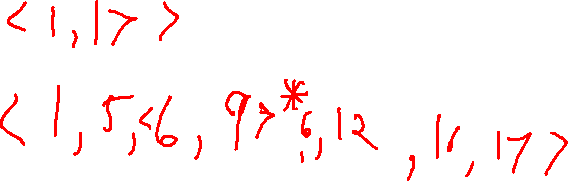 <1,17>
<1,5,<6,9>*,6,12,16,17>